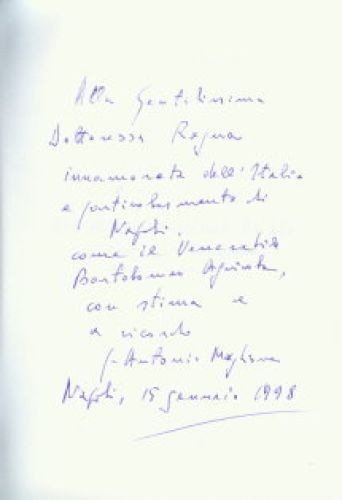 Alla Gentilissima
Dottoressa Regina
innamorata dell'Italia
e particolarmente di
Napoli,
come il Venerabile
Bartolomeo Agricola,
con stima e
a ricordo
Antonio
Napoli, 15 gennaio 1998